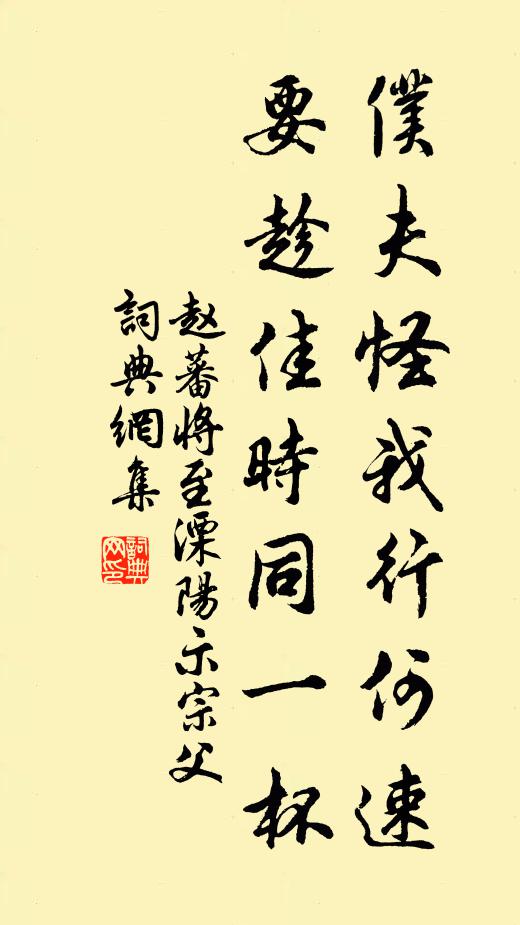 僕夫怪我行何速
要趁佳時同一杯
赵蕃將至溧陽示宗父
詞典網集
詞典网印